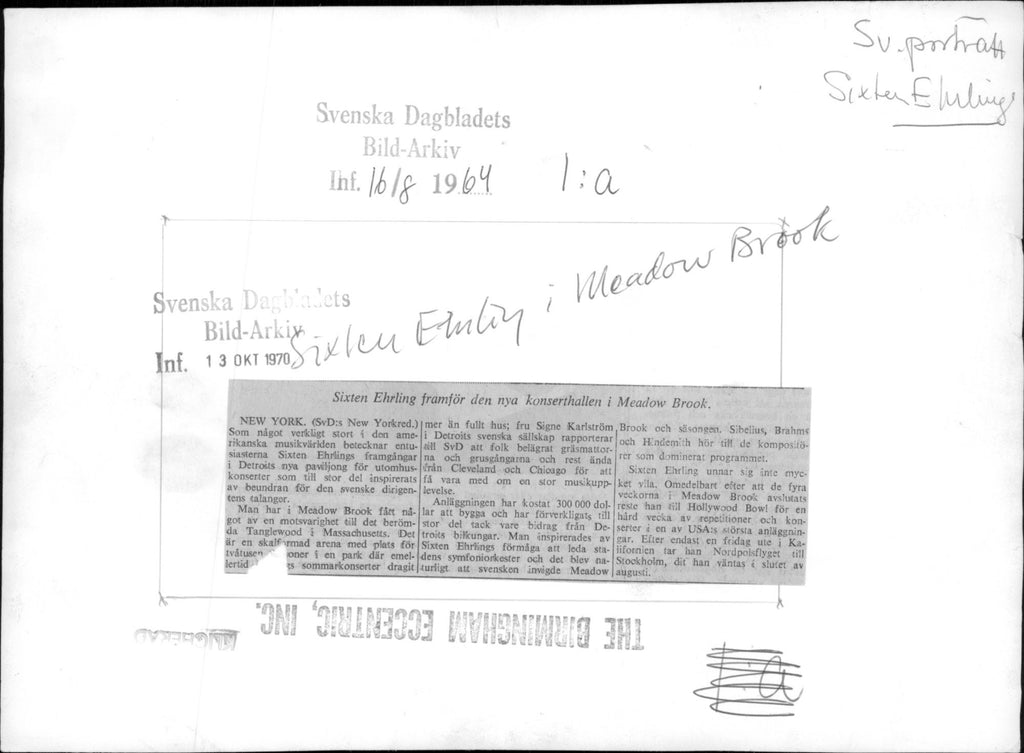 Sv. porträtt
Sixten Ehrling
Svenska Dagbladets
Bild-Arkiv
Inf. 16/8 1964
1:a
Sixten Ehrling i Meadow Brook
Svenska Dagbladets
Bild-Arkiv
Inf. 13 OKT 1970
Sixten Ehrling framför den nya konserthallen i Meadow Brook.
NEW YORK. (SvD:s New Yorkred.)
Som något verkligt stort i den ame-
rikanska musikvärlden betecknar entu-
siasterna Sixten Ehrlings framgångar
i Detroits nya paviljong för utomhus-
konserter som till stor del inspirerats
av beundran för den svenske dirigen-
tens talanger.
Man har i Meadow Brook fått nå-
got av en motsvarighet till det beröm-
da Tanglewood i Massachusetts. Det
är en skalformad arena med plats för
tvåtusen oner i en park där emel-
lertid s sommarkonserter dragit
mer än fullt hus; fru Signe Karlström
i Detroits svenska sällskap rapporterar
till SvD att folk belägrat gräsmattor-
na och grusgångarna och rest ända
från Cleveland och Chicago för att
få vara med om en stor musikupp-
levelse.
Anläggningen har kostat 300 000 dol-
lar att bygga och har förverkligats till
stor del tack vare bidrag från De-
troits bilkungar. Man inspirerades av
Sixten Ehrlings förmåga att leda sta-
dens symfoniorkester och det blev na-
turligt att svensken invigde Meadow
Brook och säsongen. Sibelius, Brahms
och Hindemith hör till de kompositö-
rer som dominerat programmet.
Sixten Ehrling unnar sig inte myc-
ket vila. Omedelbart efter att de fyra
veckorna i Meadow Brook avslutats
reste han till Hollywood Bowl för en
hård vecka av repetitioner och kon-
serter i en av USA:s största anläggnin-
gar. Efter endast en fridag ute i Ka-
lifornien tar han Nordpolsflyget till
Stockholm, dit han väntas i slutet av
augusti.
THE BIRMINGHAM ECCENTRIC, INC.
1:a